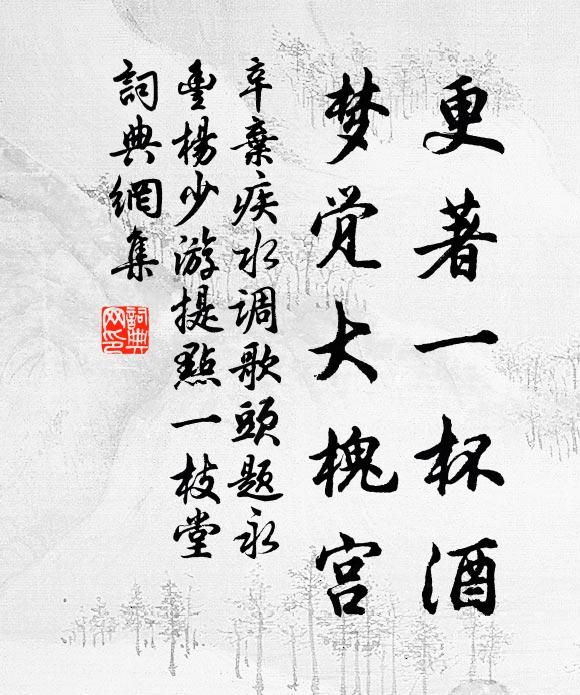 更著一杯酒
梦觉大槐宫
辛棄疾水调歌頭题永
豊楊少游提點一枝堂
詞典網集
詞典
网印